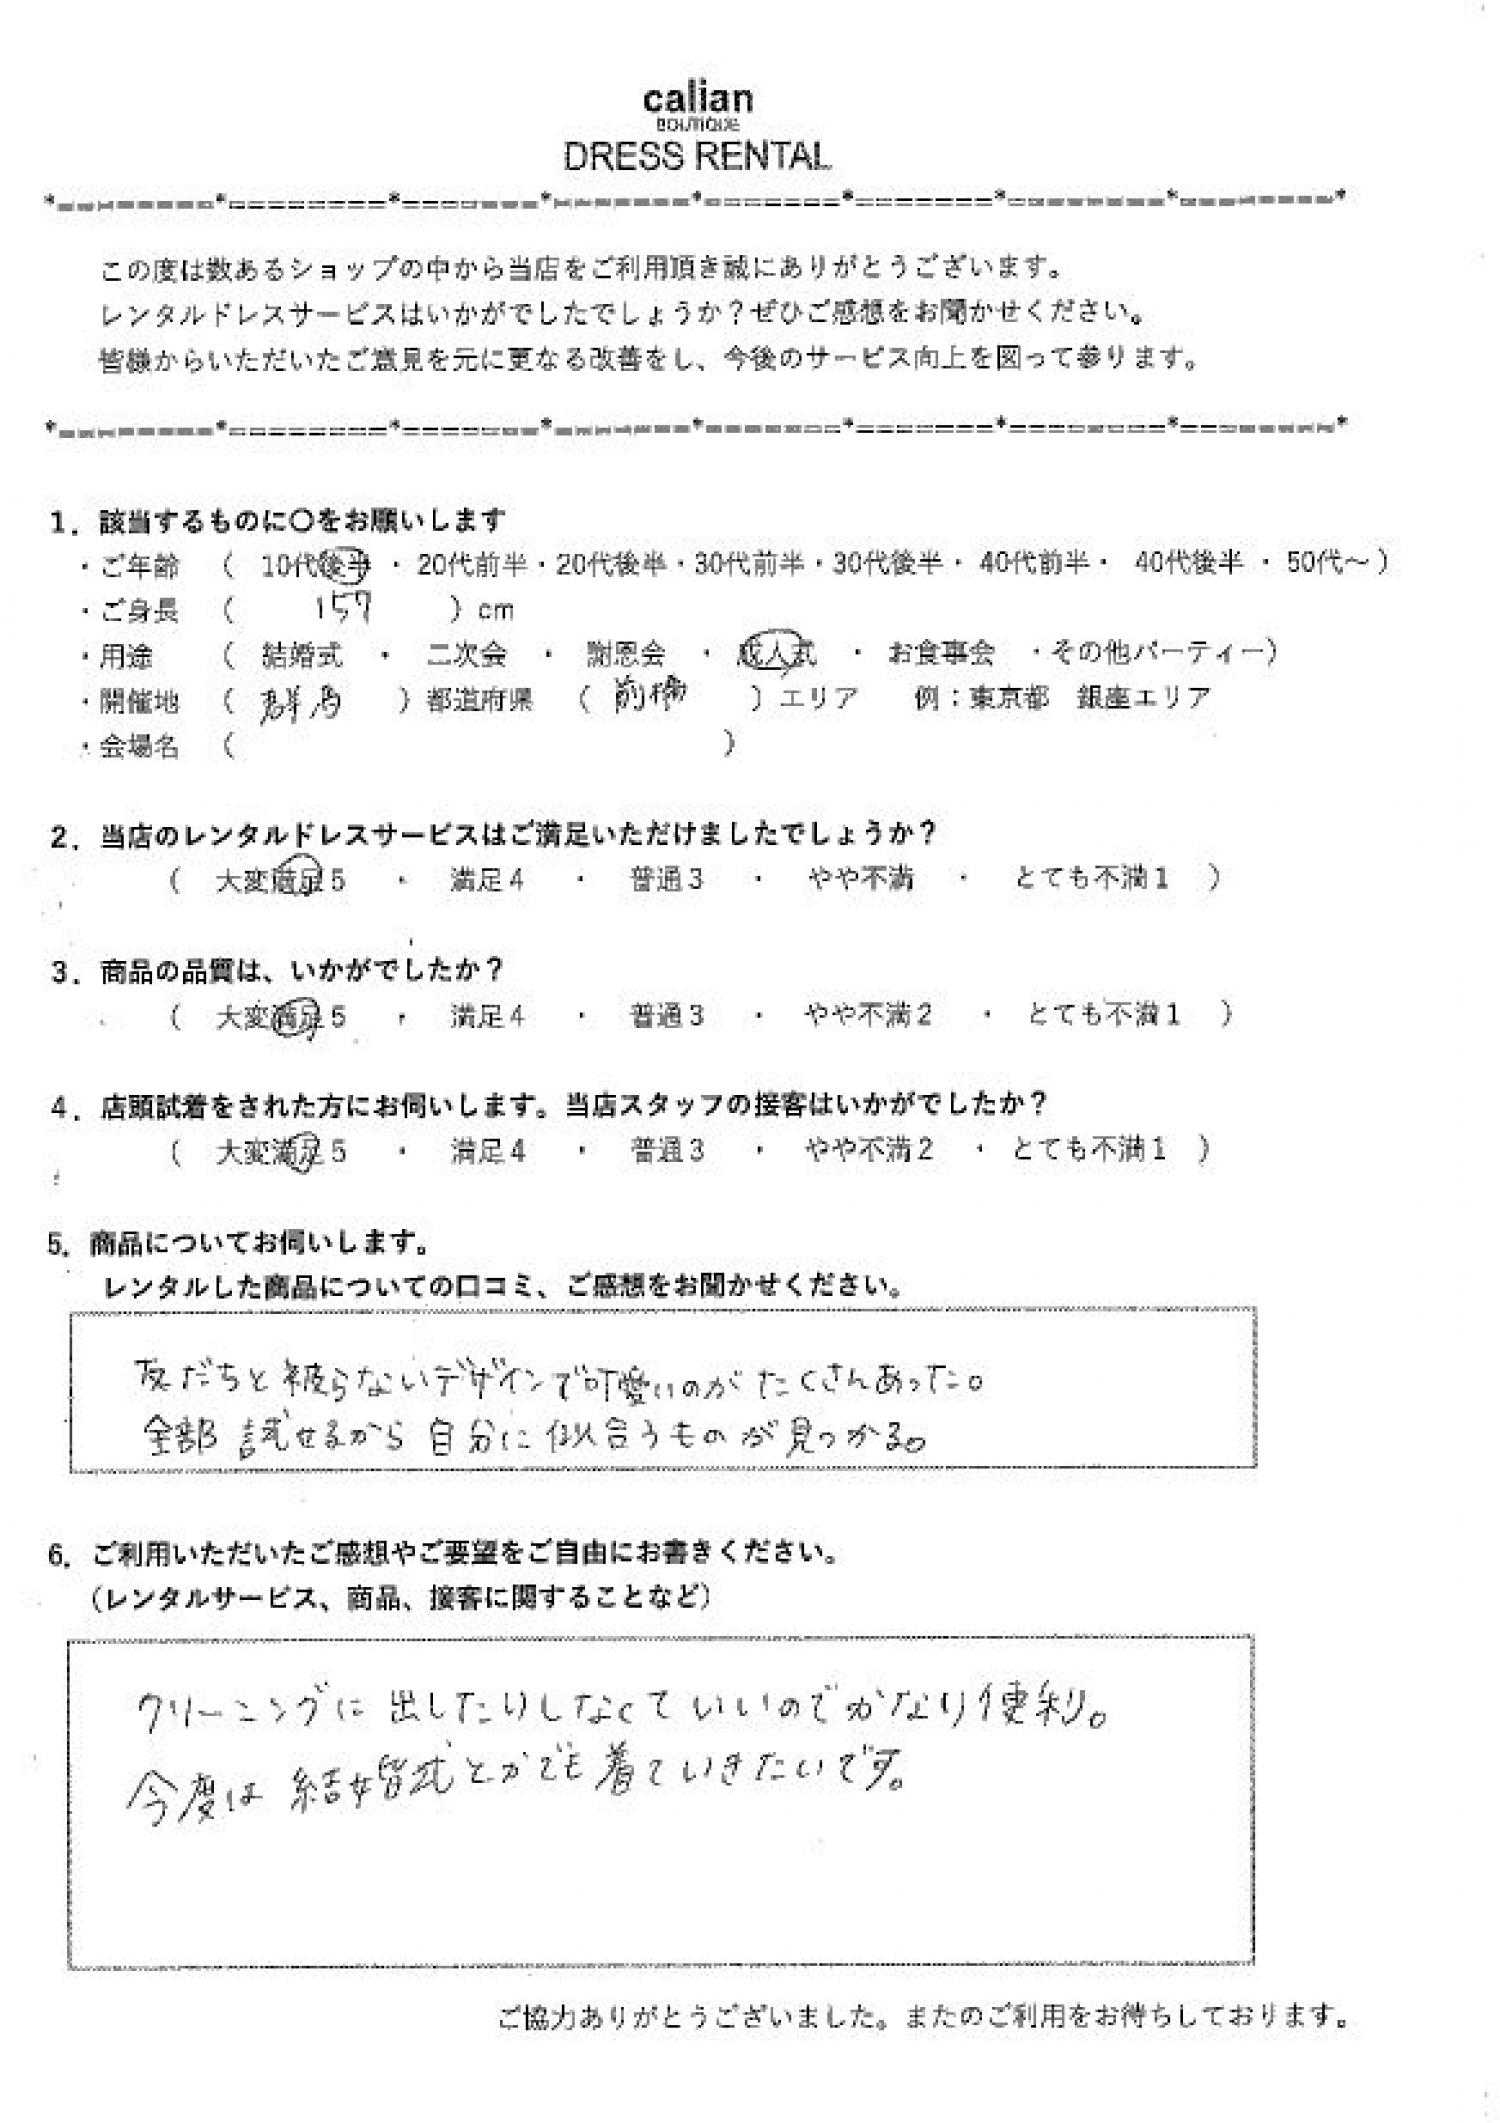 calian
BOUTIQUE
DRESS RENTAL
*=========*=========*========*========*========*========*=========*=========*
この度は数あるショップの中から当店をご利用頂き誠にありがとうございます。
レンタルドレスサービスはいかがでしたでしょうか？ぜひご感想をお聞かせください。
皆様からいただいたご意見を元に更なる改善をし、今後のサービス向上を図って参ります。
*=========*=========*========*========*========*========*=========*=========*
1．該当するものに〇をお願いします
・ご年齢 （ 10代後半 ・ 20代前半・20代後半・30代前半・30代後半・ 40代前半・ 40代後半 ・ 50代～ ）
・ご身長 （ 157 ）cm
・用途 （ 結婚式 ・ 二次会 ・ 謝恩会 ・ 成人式 ・ お食事会 ・その他パーティー）
・開催地 （ 群馬 ）都道府県 （ 前橋 ）エリア 例：東京都 銀座エリア
・会場名 （ ）
2．当店のレンタルドレスサービスはご満足いただけましたでしょうか？
（ 大変満足5 ・ 満足4 ・ 普通3 ・ やや不満 ・ とても不満1 ）
3．商品の品質は、いかがでしたか？
（ 大変満足5 ・ 満足4 ・ 普通3 ・ やや不満2 ・ とても不満1 ）
4．店頭試着をされた方にお伺いします。当店スタッフの接客はいかがでしたか？
（ 大変満足5 ・ 満足4 ・ 普通3 ・ やや不満2 ・ とても不満1 ）
5．商品についてお伺いします。
レンタルした商品についての口コミ、ご感想をお聞かせください。
友だちと被らないデザインで可愛いのがたくさんあった。
全部試せるから自分に似合うものが見つかる。
6．ご利用いただいたご感想やご要望をご自由にお書きください。
（レンタルサービス、商品、接客に関することなど）
クリーニングに出したりしなくていいのでかなり便利。
今度は結婚式とかでも着ていきたいです。
ご協力ありがとうございました。またのご利用をお待ちしております。